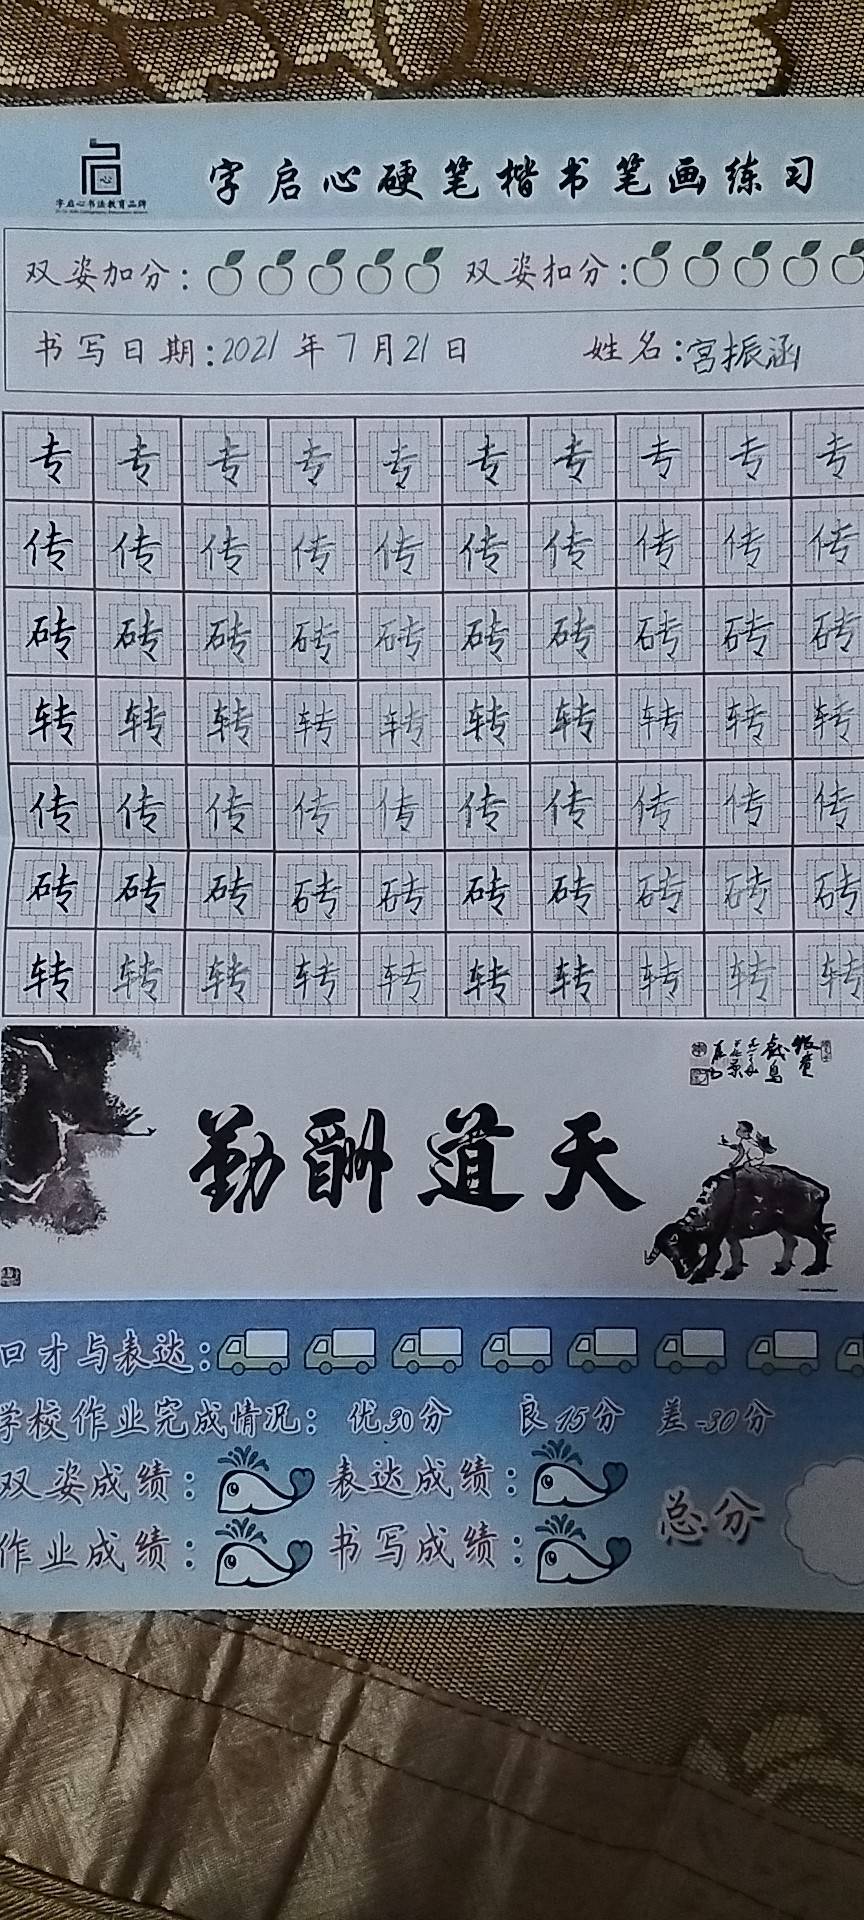 字启心硬笔楷书笔画练习
字启心书法教育品牌
双姿加分： 双姿扣分：
书写日期：2021年7月21日 姓名：宫振涵
专专专专专专专专专专
传传传传传传传传传传
砖砖砖砖砖砖砖砖砖砖
转转转转转转转转转转
传传传传传传传传传传
砖砖砖砖砖砖砖砖砖砖
转转转转转转转转转转
勤酬道天
口才与表达：
学校作业完成情况： 优30分 良15分 差-30分
双姿成绩： 表达成绩：
作业成绩： 书写成绩：
总分